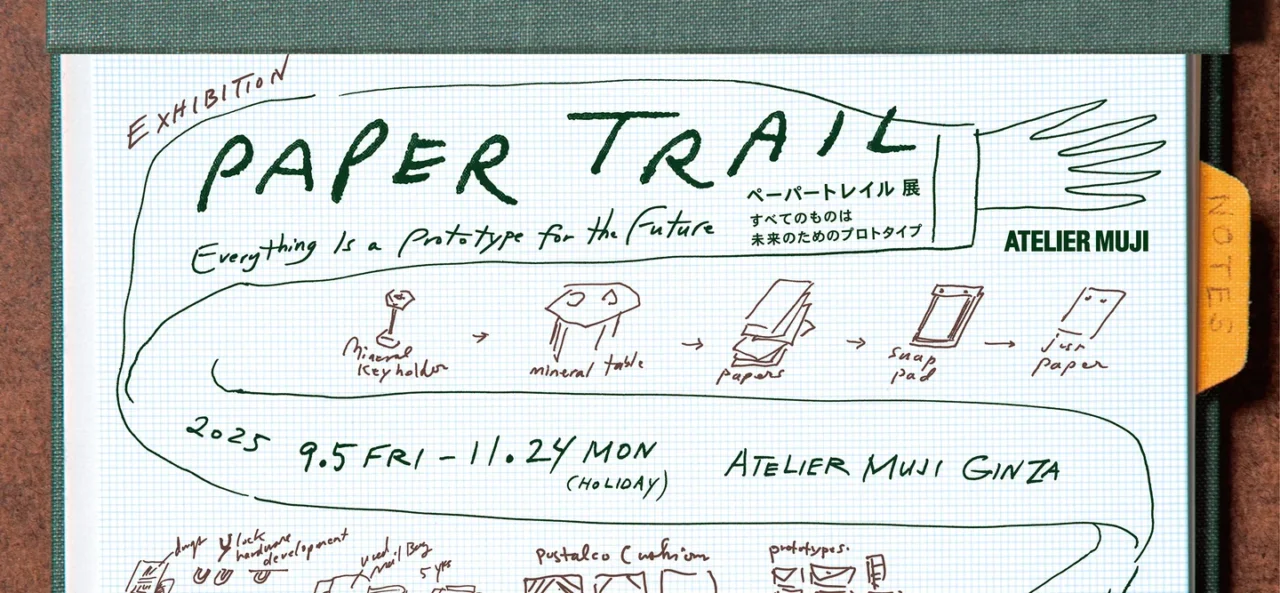 EXHIBITION
PAPER TRAIL
ペーパートレイル 展
すべてのものは
未来のためのプロトタイプ
Everything Is a Prototype for the Future
ATELIER MUJI
NOTES
Mineral
Keyholder
mineral table
papers
snap
pad
just
paper
2025 9.5 FRI – 11.24 MON
(HOLIDAY)
ATELIER MUJI GINZA
lock
hardware
development
used
mail Bag
5 yrs
postalco Cushion
prototypes.